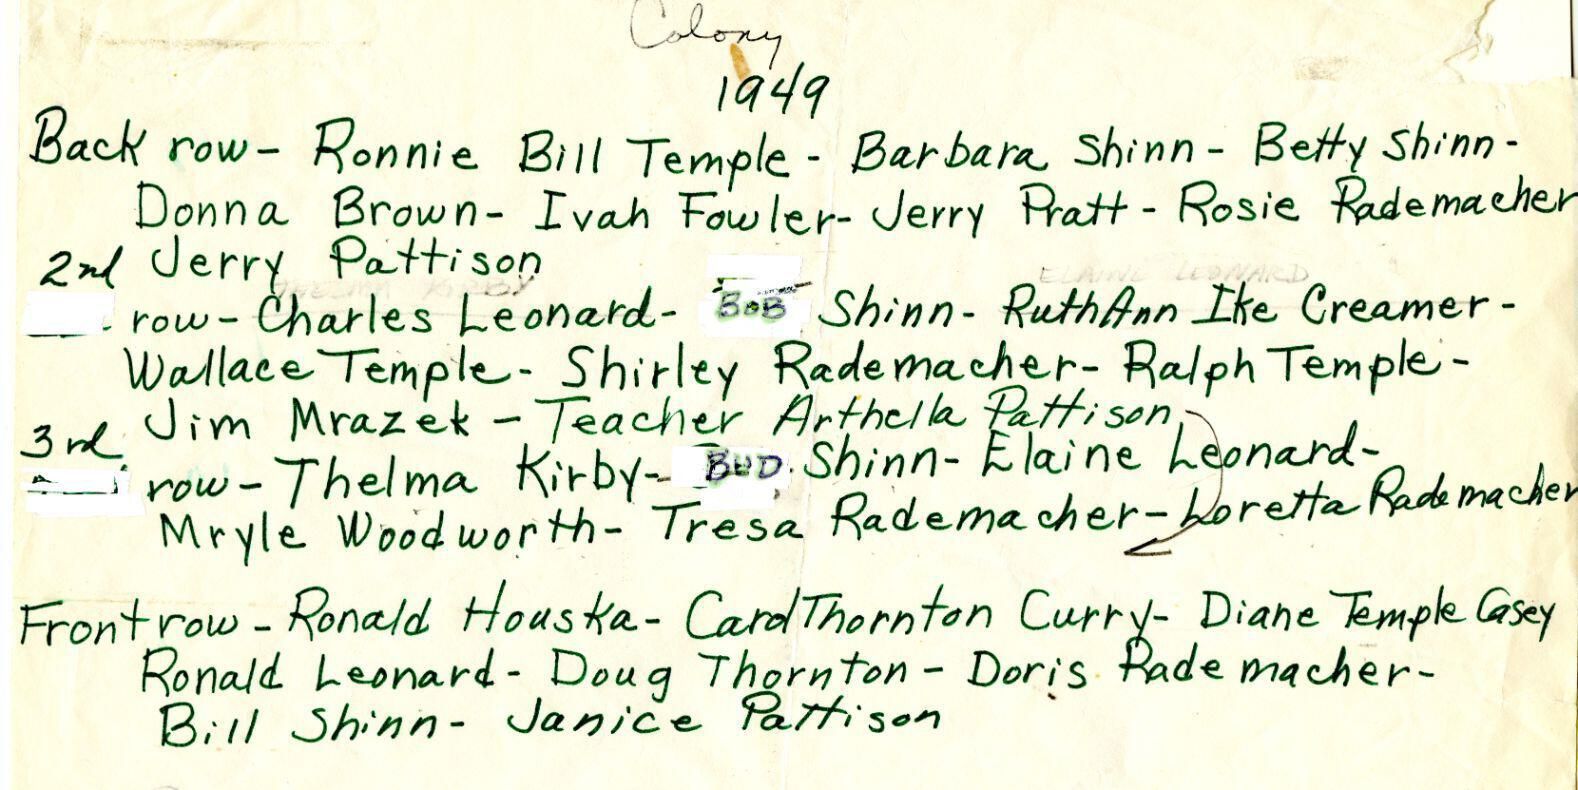 Colony
1949
Back row- Ronnie Bill Temple- Barbara Shinn- Betty Shinn-
Donna Brown- Ivah Fowler- Jerry Pratt- Rosie Rademacher
Jerry Pattison
2nd
THELMA KIRBY ELAINE LEONARD
row- Charles Leonard- BOB Shinn- RuthAnn Ike Creamer-
Wallace Temple- Shirley Rademacher- Ralph Temple-
Jim Mrazek- Teacher Arthella Pattison
3rd
row- Thelma Kirby- BUD Shinn- Elaine Leonard-
Mryle Woodworth- Tresa Rademacher- Loretta Rademacher
Front row- Ronald Houska- Carol Thornton Curry- Diane Temple Casey
Ronald Leonard- Doug Thornton- Doris Rademacher-
Bill Shinn- Janice Pattison